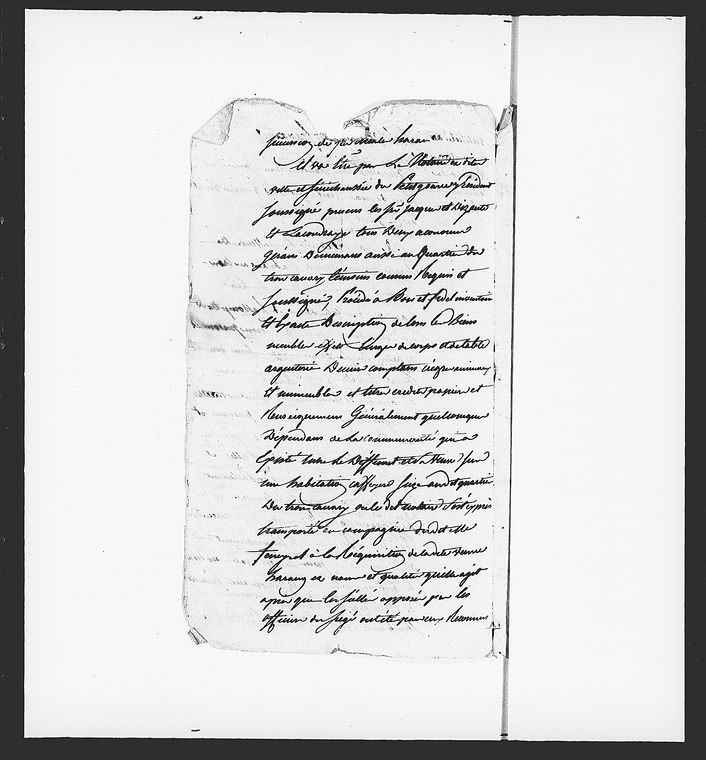 et va être par le Notaire en dite
ville et sénéchaussée du Petitgoave y résident
soussigné présens les srs Jacques et
et Lacoudraye tous deux
quérir Demeurans aussi au Quartier du
trou canary témoins connus Requis et
soussignés, Procédé à Bon et fidel inventaire
et Exacte Description de tous les Biens
meubles effets Linge de corps et de table
argenterie Deniers comptans nègres animaux
et immeubles et titres credits papiers et
Renseignemens Généralement quelconques
Dépendans de la communauté qui a
Existé entre le Deffunt et sa Veuve sur
une habitation caffeyere size audit quartier
Du trou canary où le dit notaire s'est exprès
transporté en compagnie dud. et
à la Réquisition de ladite Veuve
es noms et qualité qu'elle agit
après que les scellés apposés par les
officiers du siège ont été par eux Reconnus